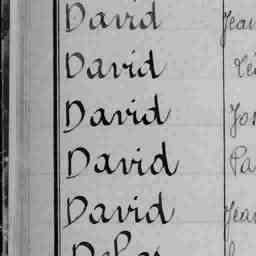 David Jean
David Lé
David Jos
David Pa
David Jean